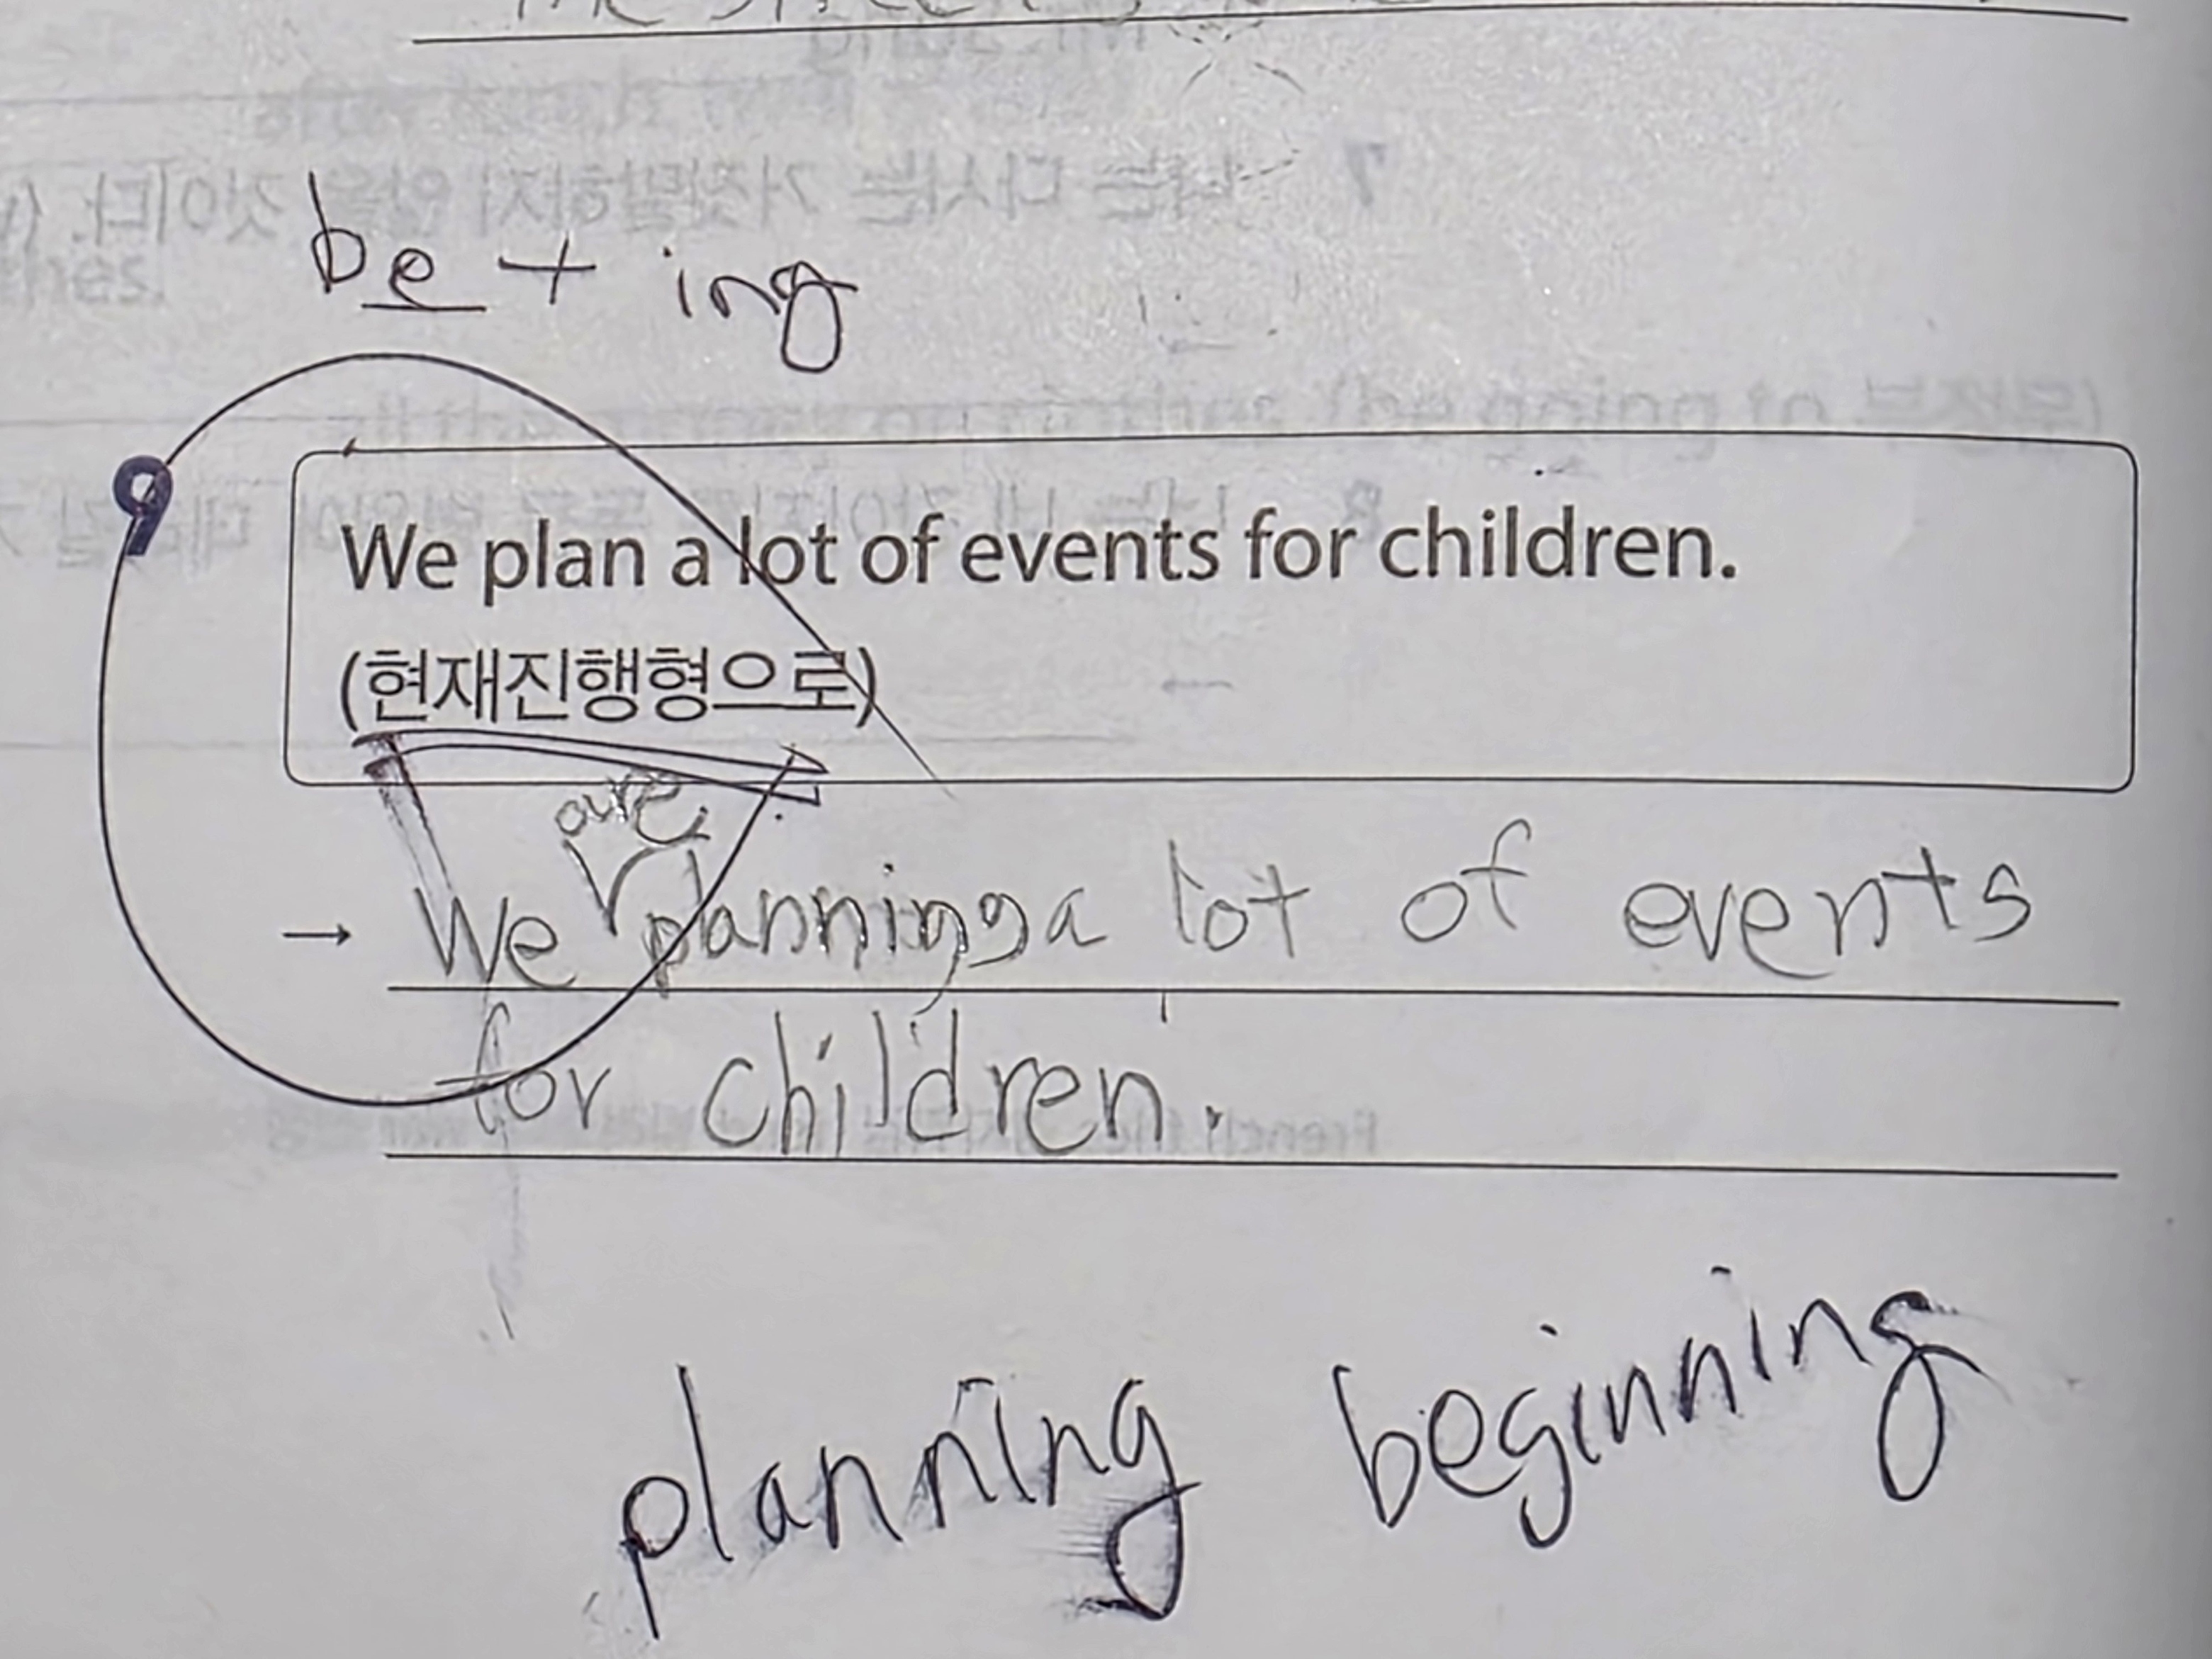 be + ing
9
We plan a lot of events for children.
(현재진행형으로)
are
→ We planning a lot of events
for children.
planning beginning